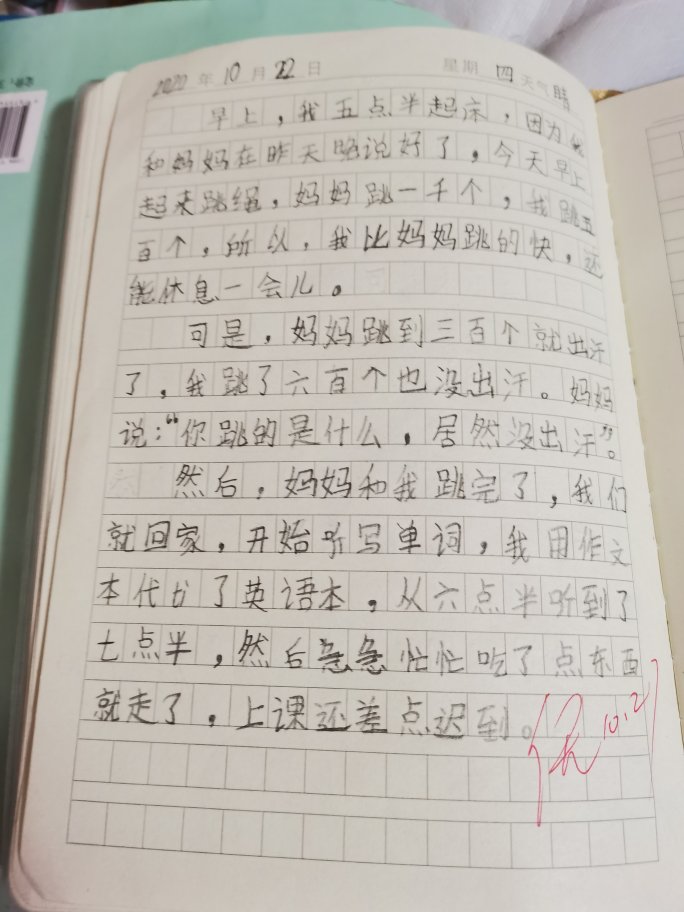 2020年10月22日 星期四天气晴
早上，我五点半起床，因为我
和妈妈在昨天晚说好了，今天早上
起来跳绳，妈妈跳一千个，我跳五
百个，所以，我比妈妈跳的快，还
能休息一会儿。
可是，妈妈跳到三百个就出汗
了，我跳了六百个也没出汗。妈妈
说：“你跳的是什么，居然没出汗”。
然后，妈妈和我跳完了，我们
就回家，开始听写单词，我用作文
本代为了英语本，从六点半听到了
七点半，然后急急忙忙吃了点东西
就走了，上课还差点迟到。
10.2